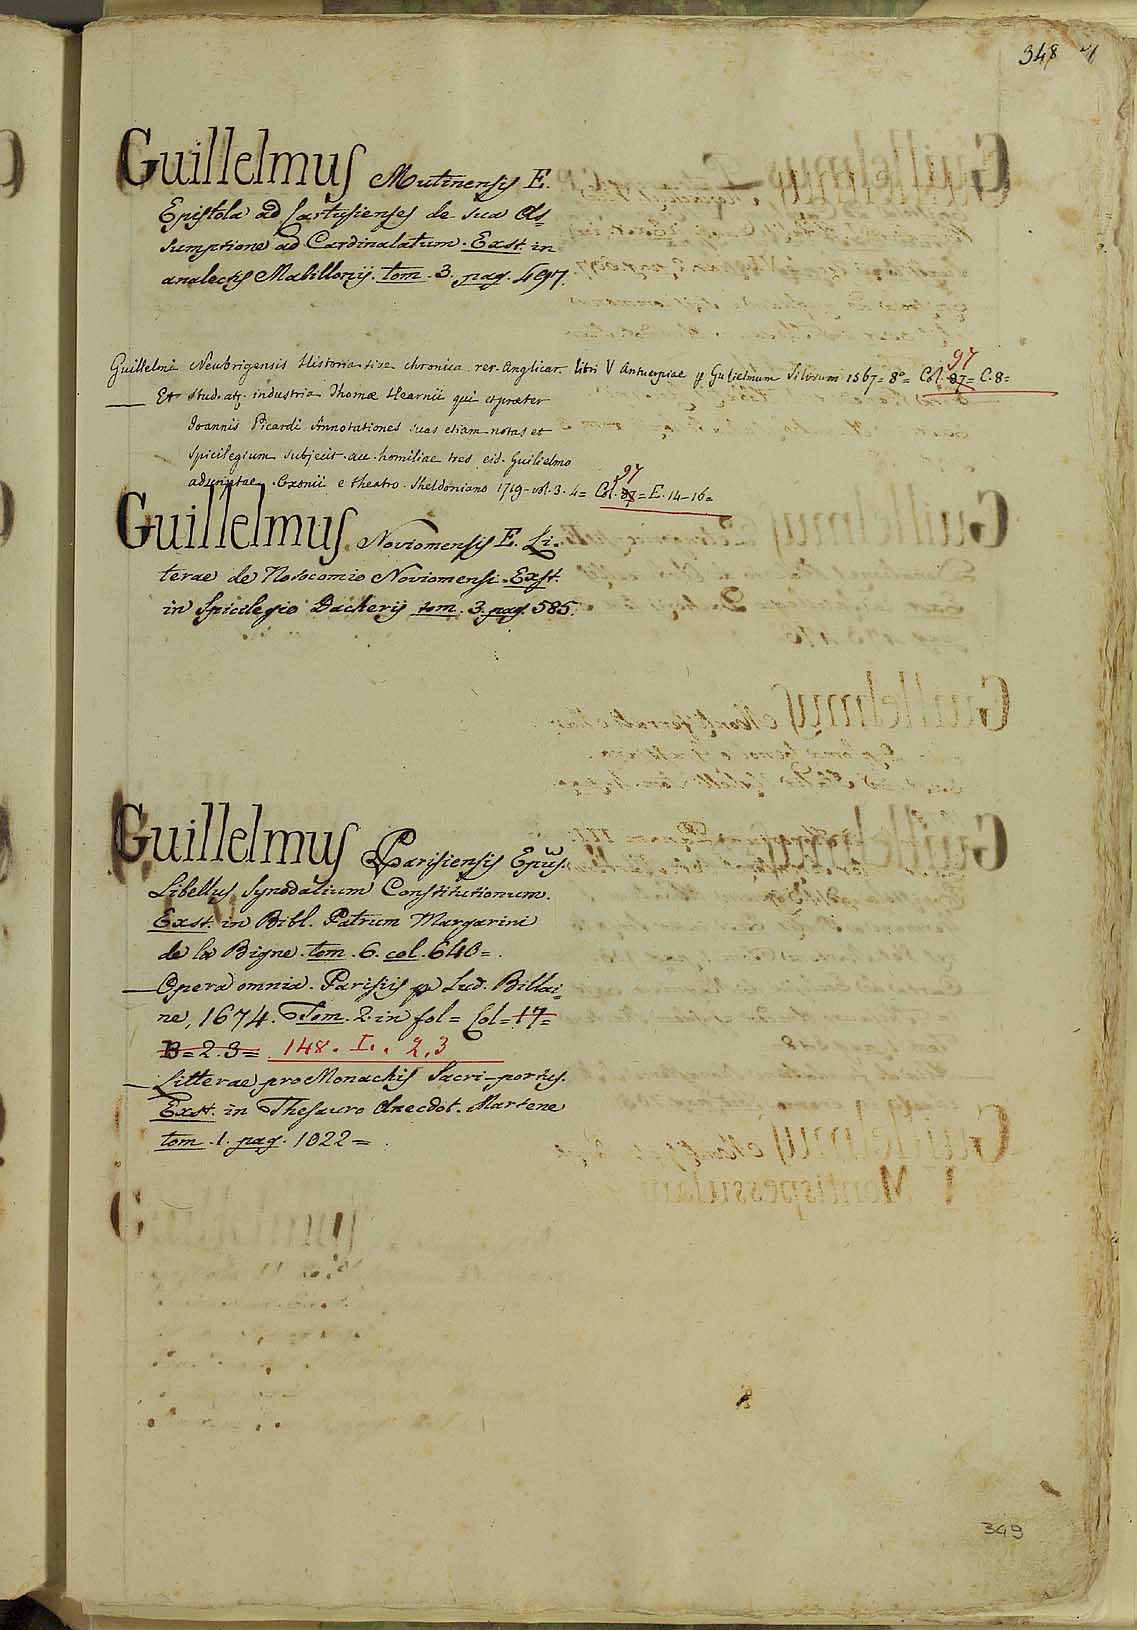 348
Guillelmus Mutinensis E.
Epistola ad Cartusienses de sua As=
sumptione ad Cardinalatum. Exst. in
analectis Mabillonij. tom. 3. pag. 497.
Guillelmi Neubrigensis Historia sive chronica rer. Anglicar. libri V Antuerpiae p Gulielmum Silvium 1567= 8°= Col. 87= 97 C.8=
Et stud. atq. industria Thomae Hearnii qui et praeter
Joannis Picardi Annotationes suas etiam notas et
spicilegium subjecit. acc. homiliae tres eid. Guilielmo
adscriptae. Oxonii e theatro Sheldoniano 1719- vol. 3. 4= Col. 87= 97 E. 14-16=
Guillelmus Noviomensis E. Li-
terae de Nosocomio Noviomensi. Exst.
in Spicilegio Dacherij tom. 3. pag. 585.
Guillelmus Parisiensis Epus.
Libellus Synodalium Constitutionum.
Exst. in Bibl. Patrum Margarini
de la Bigne. tom. 6. col. 640=.
Opera omnia. Parisiis p Lud. Billai=
ne, 1674. Tom. 2. in fol= Col= 17=
B= 2. 3= 148. I. 2,3
Litterae pro Monachis Sacri-portus.
Exst. in Thesauro Anecdot. Martene
tom. 1. pag. 1022=
349